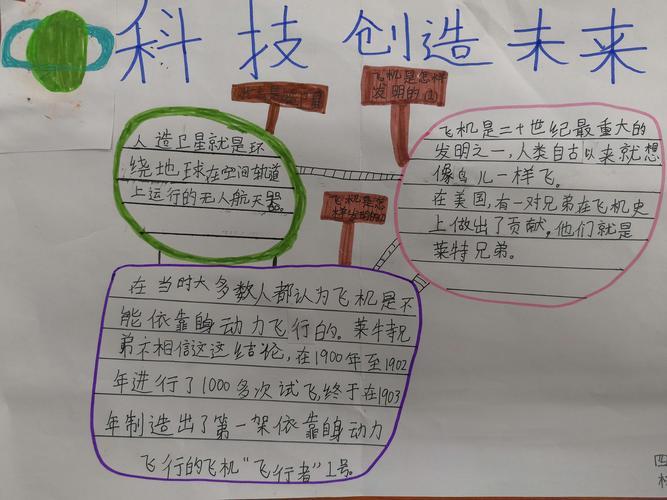 科技创造未来
飞机是怎样
发明的(1)
人造卫星就是环
绕地球在空间轨道
上运行的无人航天器。
飞机是二十世纪最重大的
发明之一，人类自古以来就想
像鸟儿一样飞。
在美国，有一对兄弟在飞机史
上做出了贡献，他们就是
莱特兄弟。
飞机是怎
样发明的
在当时大多数人都认为飞机是不
能依靠自身动力飞行的。莱特兄
弟不相信这这结论，在1900年至1902
年进行了1000多次试飞，终于在1903
年制造出了第一架依靠自身动力
飞行的飞机“飞行者”1号。
四